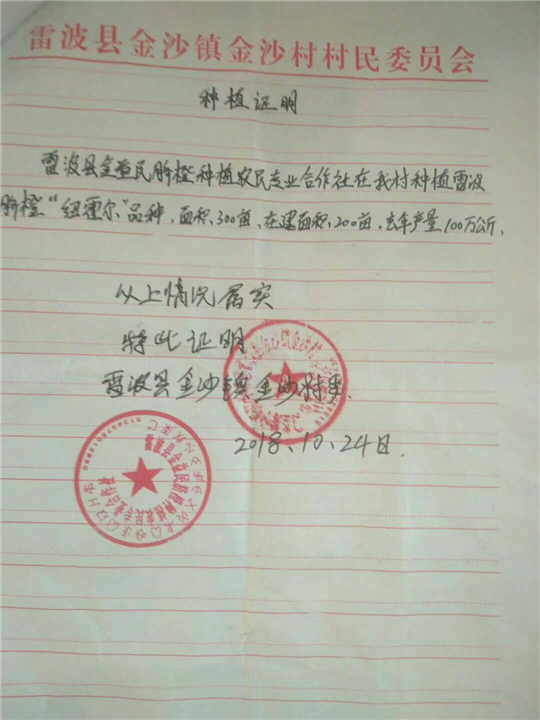 雷波县金沙镇金沙村村民委员会
种植证明
雷波县金益民脐橙种植农民专业合作社在我村种植雷波
脐橙“纽霍尔”品种，面积，300亩，在建面积，200亩，去年产量100万公斤、
以上情况属实
特此证明
雷波县金沙镇金沙村委
2018.10.24日.
雷波县金益民脐橙种植农民专业合作社